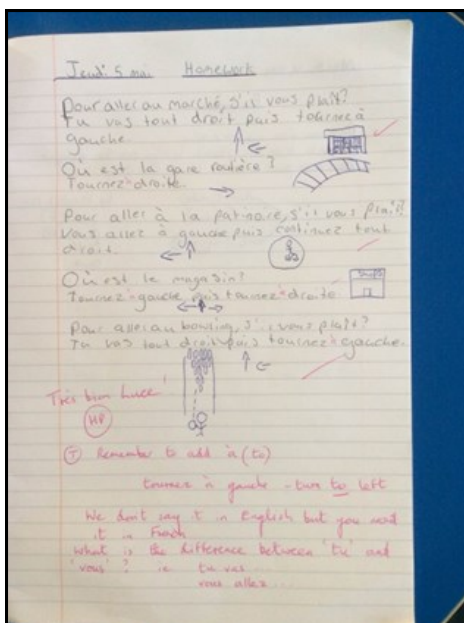 Jeudi 5 mai Homework
Pour aller au marché, s'il vous plaît?
Tu vas tout droit puis tournez à
gauche.
Où est la gare routière?
Tournez à droite.
Pour aller à la patinoire, s'il vous plaît?
Vous allez à gauche puis continuez tout
droit.
Où est le magasin?
SHOPS
Tournez à gauche puis tournez à droite.
Pour aller au bowling, s'il vous plaît?
Tu vas tout droit puis tournez à gauche.
Très bien
HP
T Remember to add à (to)
tournez à gauche - turn to left
We don't say it in English but you need
it in French
What is the difference between 'tu' and
'vous'? ie tu vas...
vous allez...